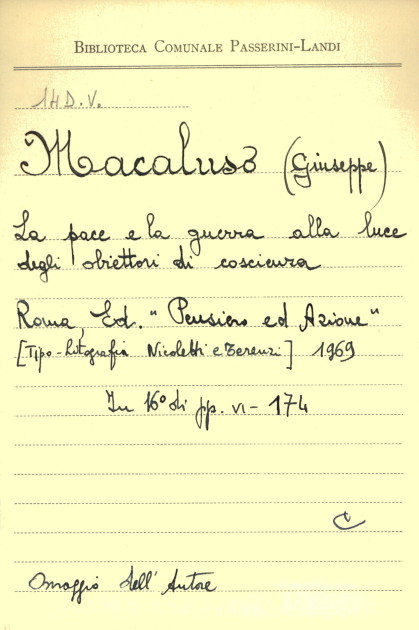 BIBLIOTECA COMUNALE PASSERINI-LANDI
1HD.V.
Macaluso (Giuseppe)
La pace e la guerra alla luce
degli obiettori di coscienza
Roma, Ed. "Pensiero ed Azione"
[Tipo-Litografia Nicoletti e Terenzi] 1969
In 16° di pp. VI-174
C
Omaggio dell'Autore